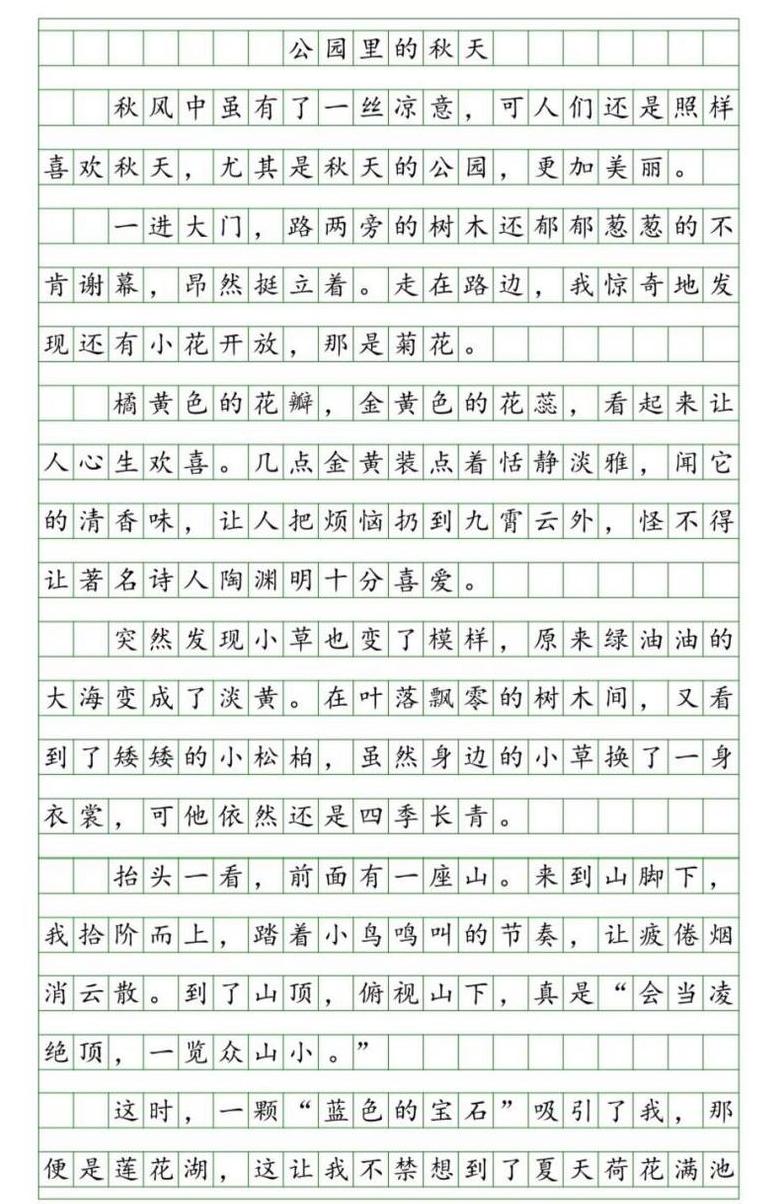 公园里的秋天
秋风中虽有了一丝凉意，可人们还是照样
喜欢秋天，尤其是秋天的公园，更加美丽。
一进大门，路两旁的树木还郁郁葱葱的不
肯谢幕，昂然挺立着。走在路边，我惊奇地发
现还有小花开放，那是菊花。
橘黄色的花瓣，金黄色的花蕊，看起来让
人心生欢喜。几点金黄装点着恬静淡雅，闻它
的清香味，让人把烦恼扔到九霄云外，怪不得
让著名诗人陶渊明十分喜爱。
突然发现小草也变了模样，原来绿油油的
大海变成了淡黄。在叶落飘零的树木间，又看
到了矮矮的小松柏，虽然身边的小草换了一身
衣裳，可他依然还是四季长青。
抬头一看，前面有一座山。来到山脚下，
我拾阶而上，踏着小鸟鸣叫的节奏，让疲倦烟
消云散。到了山顶，俯视山下，真是“会当凌
绝顶，一览众山小。”
这时，一颗“蓝色的宝石”吸引了我，那
便是莲花湖，这让我不禁想到了夏天荷花满池